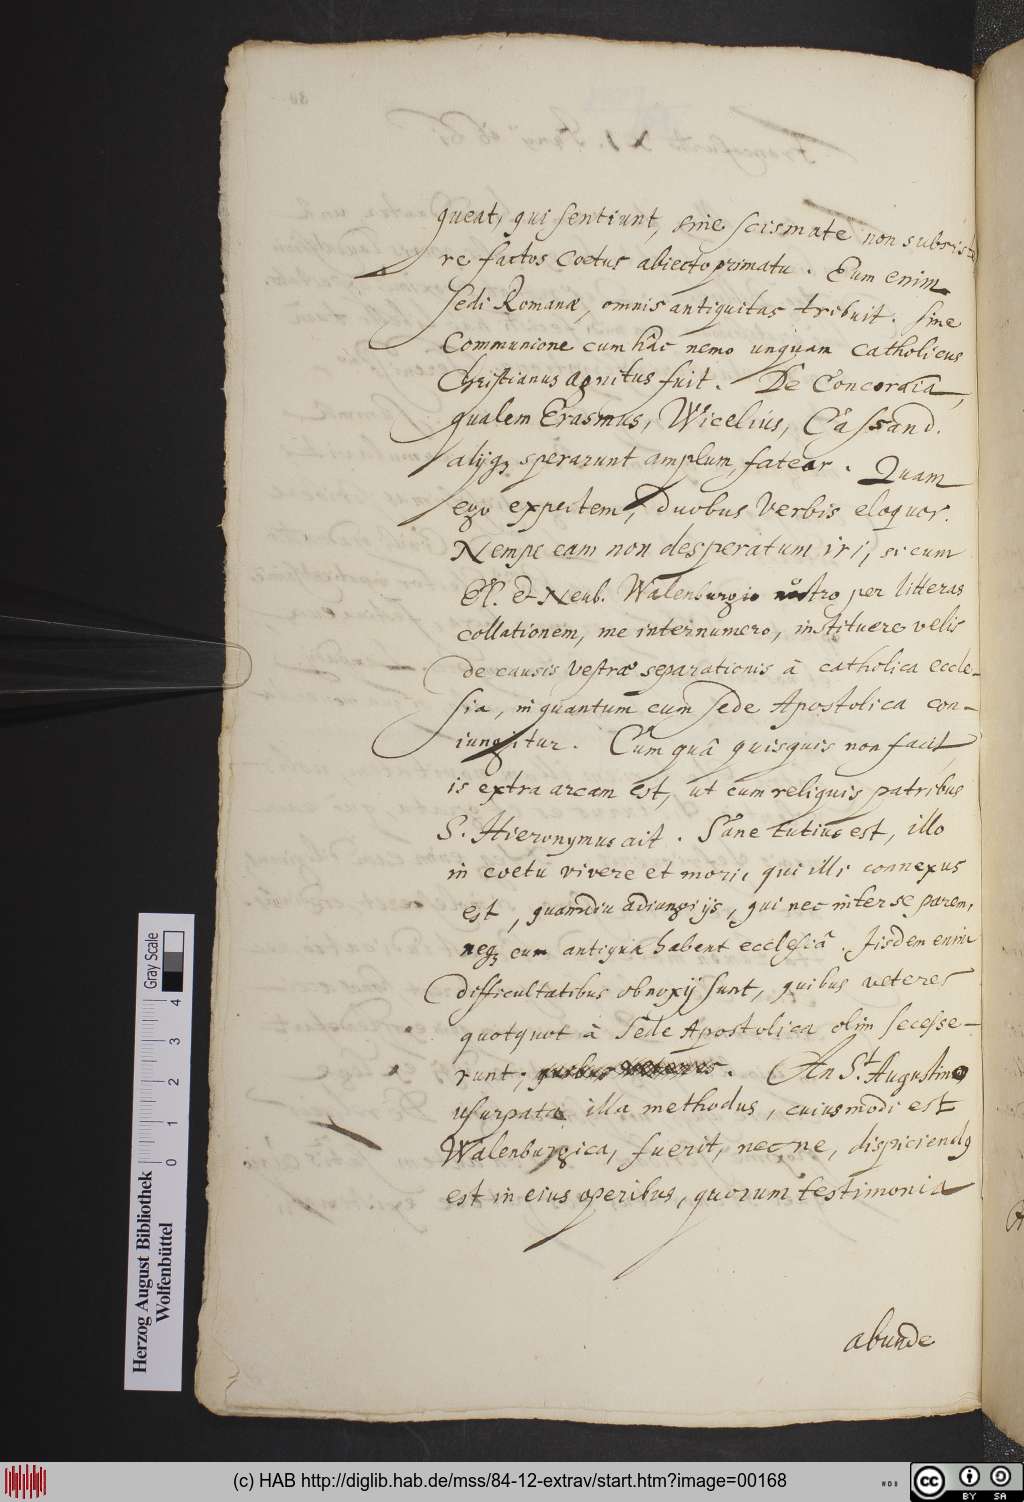 queat, qui sentiunt, sine scismate non subsiste
re factos coetus abiecto primatu. Eum enim
sedi Romanæ, omnis antiquitas tribuit. sine
Communione cum hâc nemo unquam catholicus
Christianus agnitus fuit. De Concordiâ,
qualem Erasmus, Wicelius, Cassand.
alijqꝫ sperarunt amplum, fateor. Quam
ego expectem, duobus verbis eloquor.
Nempe eam non desperatum iri, si cum
et Neub. Walenburgio nostro per litteras
collationem, me internumero, instituere velis
de causis vestræ separationis â catholica eccle-
sia, in quantum cum sede Apostolica con-
iungitur. Cum quâ quisquis non facit,
is extra arcam est, ut cum reliquis patribus
S. Hieronymus ait. Sane tutius est, illo
in coetu vivere et mori, qui illi connexus
est, quamdiu adiungi ijs, qui nec inter se pacem,
neqꝫ cum antiqua habent ecclesiâ. Iisdem enim
difficultatibus obnoxij sunt, quibus veteres
quotquot â Sede Apostolica olim secesse-
runt, quibus veteres. An St. Augustino
usurpata illa methodus, cuiusmodi est
Walenburgica, fuerit, nec ne, dispiciendū
est in eius operibus, quorum testimonia
abunde
Herzog August Bibliothek
Wolfenbüttel
Gray Scale
0 1 2 3 4
(c) HAB http://diglib.hab.de/mss/84-12-extrav/start.htm?image=00168
WDB
cc BY SA